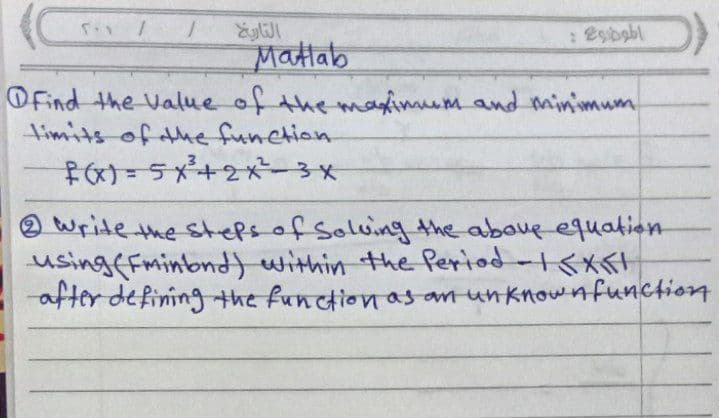 الموضوع : التاريخ / / ٢٠٠
Matlab
① Find the value of the maximum and minimum
limits of the function
f(x) = 5x³ + 2x² - 3x
② Write the steps of Solving the above equation
using (Fminbnd) within the Period -1 ≤ x ≤ 1
after defining the function as an unknown function